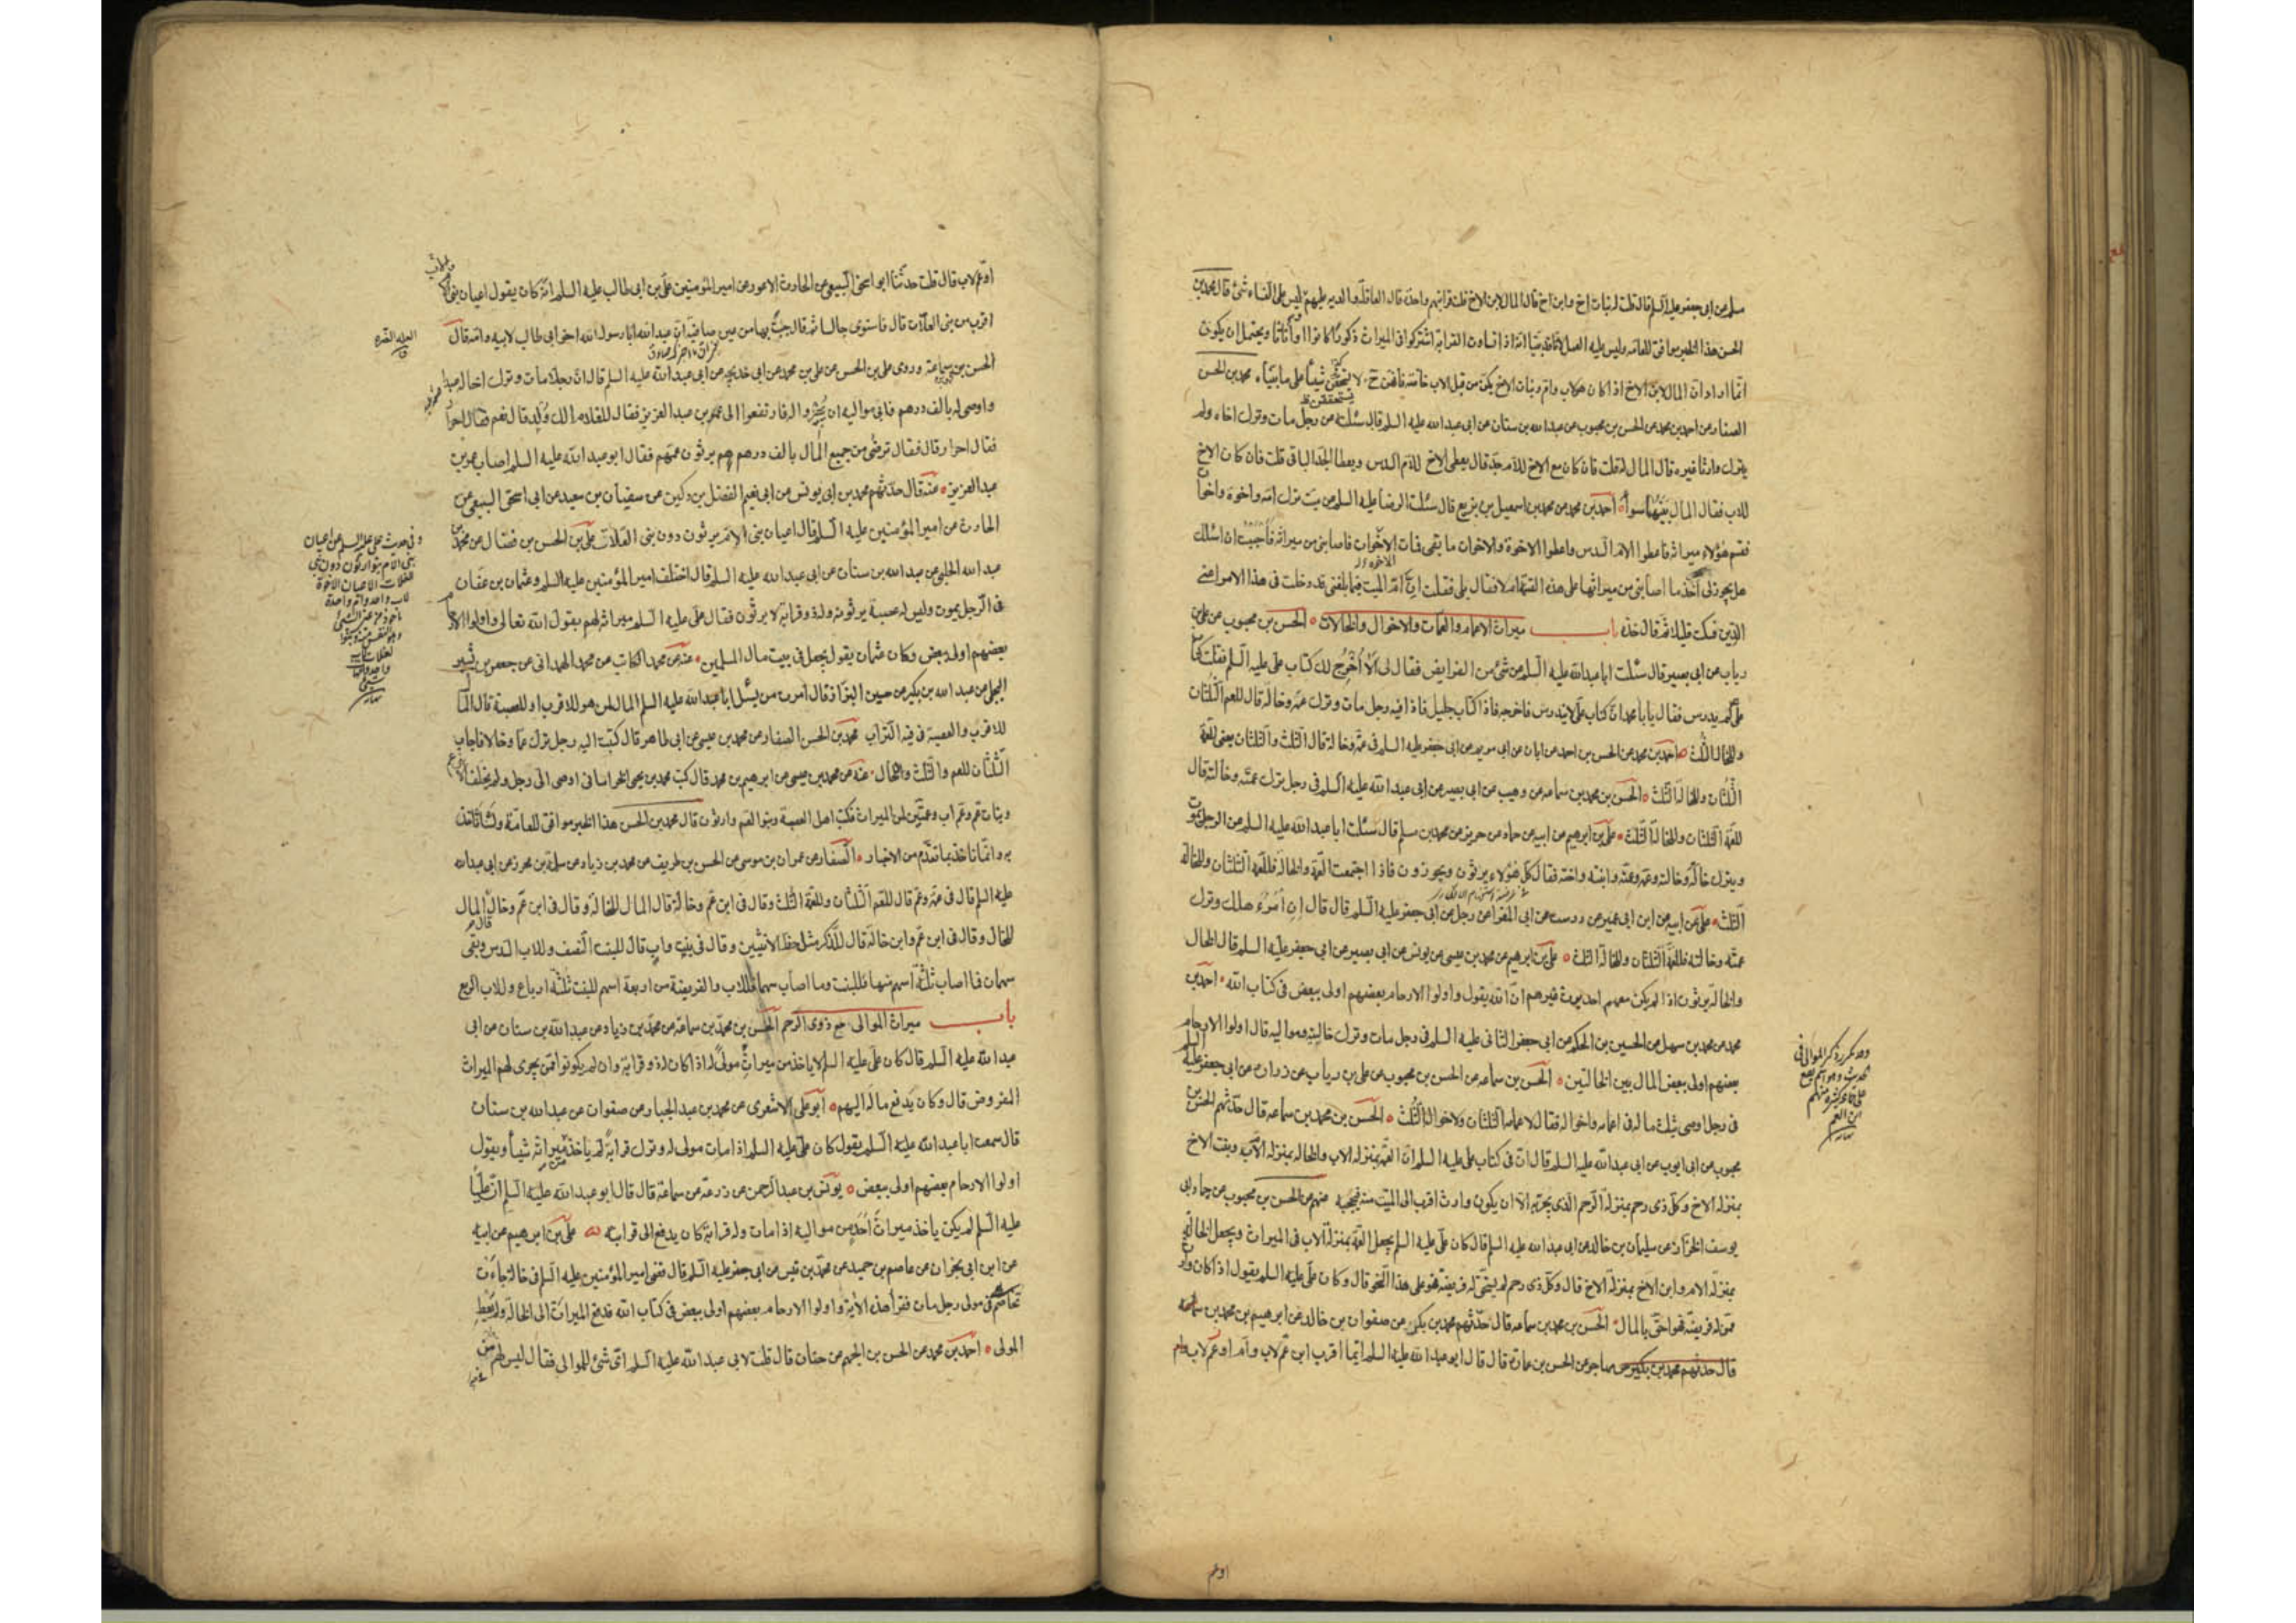 سلم عن ابي جعفر عليه السلم قال قلت له بنات اخ وابن اخ قال المال لابن الاخ قلت قرابتهم واحدة قال العاقلة والدية عليهم ليس على النساء شئ قال محمد بن
الحسن هذا الخبر موافق للعامه وليس عليه العمل لانا قد بينا انه اذا تساوت القرابة اشتركوا فى الميراث ذكورًا كانوا او أناثا ويحتمل ان يكون
انما اراد ان المال لابن الاخ اذا كان لاب وام وبنات الاخ يكن من قبل الاب خاصة فانهن ح لا يستحققن شيئاً على ما بيناه محمد بن الحسن
يستحققن
الصفار عن احمد بن محمد عن الحسن بن محبوب عن عبدالله بن سنان عن ابي عبد الله عليه السلم قال سئلته عن رجل مات وترك اخاه ولم
يترك وارثا غيره قال المال له قلت فان كان مع الاخ للام جد قال يعطى الاخ للام السدس ويعطا الجد الباقى قلت فان كان الاخ
للاب فقال المال بينهما سواء احمد بن محمد عن محمد بن اسمعيل بن بزيع قال سئلت الرضا عليه السلم عن ميت ترك امه واخوة واخوات
فقسم هؤلاء ميراثه فاعطوا الام السدس واعطوا الاخوة والاخوات ما بقى فمات الاخوات فاصابنى من ميراثه فأحببت ان اسئلك
هل يجوز لى آخذ ما اصابنى من ميراثها على هذه القسمة ام لا فقال بلى فقلت ان ام الميت فيما بلغنى قد دخلت فى هذا الامر اعنى
الدين فسكت قليلا ثم قال خذه باب ميراث الاعمام والعمات والاخوال والخالات الحسن بن محبوب عن على بن
رياب عن ابي بصير قال سئلت ابا عبد الله عليه السلم عن شئ من الفرايض فقال لى ألا أُخرج لك كتاب على عليه السلم فقلت كتاب
على لم يدرس فقال يا با محمد ان كتاب على لا يندرس فاخرجه فاذا كتاب جليل فاذا فيه رجل مات وترك عمه وخاله قال للعم الثلثان
وللخال الثلث احمد بن محمد عن الحسن بن احمد عن ابان عن ابي مريم عن ابي جعفر عليه السلم فى عمة وخالة قال الثلث والثلثان يعنى للعمة
الثلثان وللخالة الثلث الحسن بن محمد بن سماعه عن وهيب عن ابي بصير عن ابي عبد الله عليه السلم فى رجل ترك عمته وخالته قال
للعمة الثلثان وللخالة الثلث على بن ابرهيم عن ابيه عن حماد عن حريز عن محمد بن مسلم قال سئلت ابا عبد الله عليه السلم عن الرجل يموت
ويترك خاله وخالته وعمه وعمته وابنته واخته فقال كل هؤلاء يرثون ويحوزون فاذا اجتمعت العمة والخالة فللعمة الثلثان وللخالة
الثلث على عن ابيه عن ابن ابي عمير عن درست عن ابي المغرا عن رجل عن ابي جعفر عليه السلم قال قال ان امرؤ هلك وترك
عمته وخالته فللعمة الثلثان وللخالة الثلث على بن ابرهيم عن محمد بن عيسى عن يونس عن ابي بصير عن ابي جعفر عليه السلم قال الخال
والخالة يرثون اذا لم يكن معهم احد يرث غيرهم ان الله يقول واولوا الارحام بعضهم اولى ببعض فى كتاب الله احمد بن
محمد عن محمد بن سهل عن الحسين بن الحكم عن ابي جعفر الثانى عليه السلم فى رجل مات وترك خالتيه ومواليه قال اولوا الارحام
بعضهم اولى ببعض المال بين الخالتين الحسن بن سماعه عن الحسن بن محبوب عن على بن رياب عن زرارة عن ابي جعفر عليه السلم
فى رجل اوصى بثلث ماله فى اعمامه واخواله فقال لاعمامه الثلثان ولاخواله الثلث الحسن بن محمد بن سماعه قال حدثهم الحسن بن
محبوب عن ابي ايوب عن ابي عبد الله عليه السلم قال ان فى كتاب على عليه السلم ان العمة بمنزلة الاب والخالة بمنزلة الام وبنت الاخ
بمنزلة الاخ وكل ذى رحم بمنزلة الرحم الذى يجر به الا ان يكون وارث اقرب الى الميت منه فيحجبه عنهم عن الحسن بن محبوب عن حماد بن
يوسف الخزاز عن سليمان بن خالد عن ابي عبد الله عليه السلم قال كان على عليه السلم يجعل العمة بمنزلة الاب فى الميراث ويجعل الخالة
بمنزلة الام وابن الاخ بمنزلة الاخ قال وكل ذى رحم لم يستحق له فريضة فهو على هذا النحو قال وكان على عليه السلم يقول اذا كان وارث
ممن له فريضة فهو احق بالمال الحسن بن محمد بن سماعه قال حدثهم محمد بن بكر عن صفوان بن خالد عن ابرهيم بن محمد بن مهاجر
قال حدثهم محمد بن بكير عن مهاجر عن الحسن بن عمارة قال قال ابو عبد الله عليه السلم ايما اقرب ابن عم لاب وام او عم لاب
وقد تكرر ذكر الموالى فى
الحديث وهو اسم يقع
على جماعة كثيرة منهم
ابن العم
نهاية
او عم
او عم لاب قال قلت حدثنا ابو اسحق السبيعى عن الحارث الاعور عن امير المؤمنين على بن ابى طالب عليه السلم انه كان يقول اعيان بنى الام
اقرب من بنى العلات قال فاستوى جالسا ثم قال جئت بها من عين صافية ان عبدالله ابا رسول الله اخو ابى طالب لابيه وامه قال
الحسن بن سماعة وروى على بن الحسن عن على بن محمد عن ابى خديجة عن ابى عبد الله عليه السلم قال ان رجلا مات وترك اخا له عبدا
واوصى له بالف درهم فابى مواليه ان يجيزوا له فارتفعوا الى عمر بن عبد العزيز فقال للغلام الك ولد قال نعم فقال احرار
فقال احرار قال فقال ترضى من جميع المال بالف درهم هم يرثون عمهم فقال ابو عبد الله عليه السلم اصاب عمر بن
عبد العزيز عنه قال حدثهم محمد بن ابى يونس عن ابى نعيم الفضل بن دكين عن سفيان بن سعيد عن ابى اسحق السبيعى عن
الحارث عن امير المؤمنين عليه السلم قال اعيان بنى الام يرثون دون بنى العلات على بن الحسن بن فضال عن محمد بن
عبد الله الحلبى عن عبد الله بن سنان عن ابى عبد الله عليه السلم قال اختلف امير المؤمنين عليه السلم وعثمان بن عفان
فى الرجل يموت وليس له عصبة يرثونه وله ذو قرابة لا يرثون فقال على عليه السلم ميراثه لهم يقول الله تعالى واولوا الارحام
بعضهم اولى ببعض وكان عثمان يقول يجعل فى بيت مال المسلمين عنه عن محمد الكاتب عن محمد الهمدانى عن جعفر بن بشير
البجلى عن عبد الله بن بكير عن حسين البزاز قال امرت من يسئل ابا عبد الله عليه السلم المال لمن هو للاقرب او للعصبة قال المال
للاقرب والعصبة فى فيه التراب محمد بن الحسن الصفار عن محمد بن عيسى عن ابى طاهر قال كتبت اليه رجل ترك عما وخالا فاجاب
الثلثان للعم والثلث للخال عنه عن محمد بن عيسى عن ابرهيم بن محمد قال كتب محمد بن يحيى الخراسانى اوصى الى رجل ولم يخلف الا
وبنات عم وعم اب وعمتين لمن الميراث فكتب اهل العصبة وبنو العم وارثون قال محمد بن الحسن هذا الخبر موافق للعامة ولسنا ناخذ
به وانما ناخذ بما تقدم من الاخبار الصفار عن عمران بن موسى عن الحسن بن ظريف عن محمد بن زياد عن سلمة بن محرز عن ابى عبدالله
عليه السلم قال فى عمة وعم قال للعم الثلثان وللعمة الثلث وقال فى ابن عم وخالة قال المال للخالة وقال فى ابن عم وخال قال المال
للخال وقال فى ابن عم وابن خالة قال للذكر مثل حظ الانثيين وقال فى بنت واب قال للبنت النصف وللاب السدس وبقى
سهمان فما اصاب ثلثة اسهم منها فللبنت وما اصاب سهما فللاب والفريضة من اربعة اسهم للبنت ثلثة ارباع وللاب الربع
باب ميراث الموالى مع ذوى الرحم الحسن بن محمد بن سماعة عن محمد بن زياد عن عبد الله بن سنان عن ابى
عبد الله عليه السلم قال كان على عليه السلم لا ياخذ من ميراث مولىً له اذا كان له ذو قرابة وان لم يكونوا ممن يجرى لهم الميراث
المفروض قال وكان يدفع ماله اليهم ابو على الاشعرى عن محمد بن عبد الجبار عن صفوان عن عبد الله بن سنان
قال سمعت ابا عبد الله عليه السلم يقول كان على عليه السلم اذا مات مولى له وترك قرابةً لم ياخذ من ميراثه شيئاً ويقول
اولوا الارحام بعضهم اولى ببعض يونس بن عبد الرحمن عن زرعة عن سماعة قال قال ابو عبد الله عليه السلم ان علياً
عليه السلم لم يكن ياخذ ميراث أحدٍ من مواليه اذا مات وله قرابة كان يدفع الى قرابته على بن ابرهيم عن ابيه
عن ابن ابى نجران عن عاصم بن حميد عن محمد بن قيس عن ابى جعفر عليه السلم قال قضى امير المؤمنين عليه السلم فى خالة جاءت
تخاصم فى مولى رجل مات فقرأ هذه الآية واولوا الارحام بعضهم اولى ببعض فى كتاب الله فدفع الميراث الى الخالة ولم يعط
المولى احمد بن محمد عن الحسن بن الجهم عن حنان قال قلت لابى عبد الله عليه السلم اى شئ للموالى فقال ليس لهم من
العلة الضرة
ق
وفى حديث على عليه السلم عن اعيان
بنى الام يتوارثون دون بنى
العلات الاعيان الاخوة
لاب واحد وام واحدة
نهاية